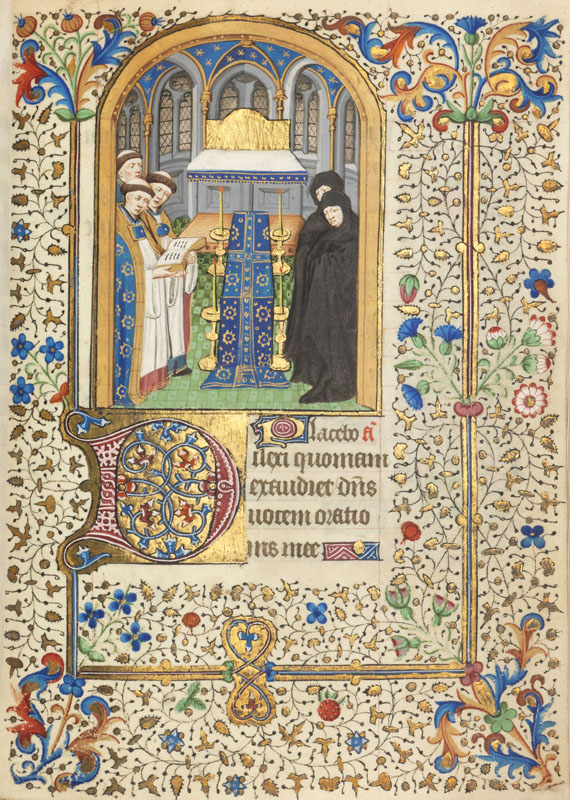 Placebo a
Dilexi quoniam
exaudiet dns
vocem oratio
nis mee